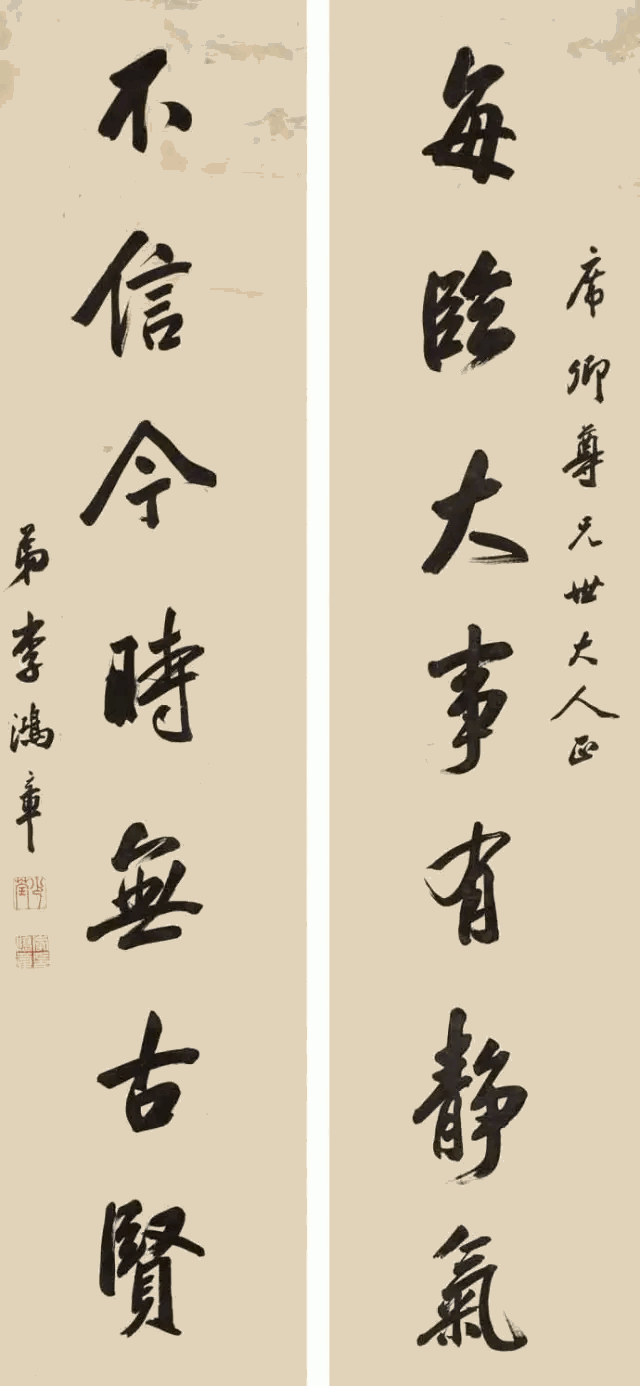 席卿尊兄世大人正
每臨大事有靜氣
不信今時無古賢
弟李鴻章